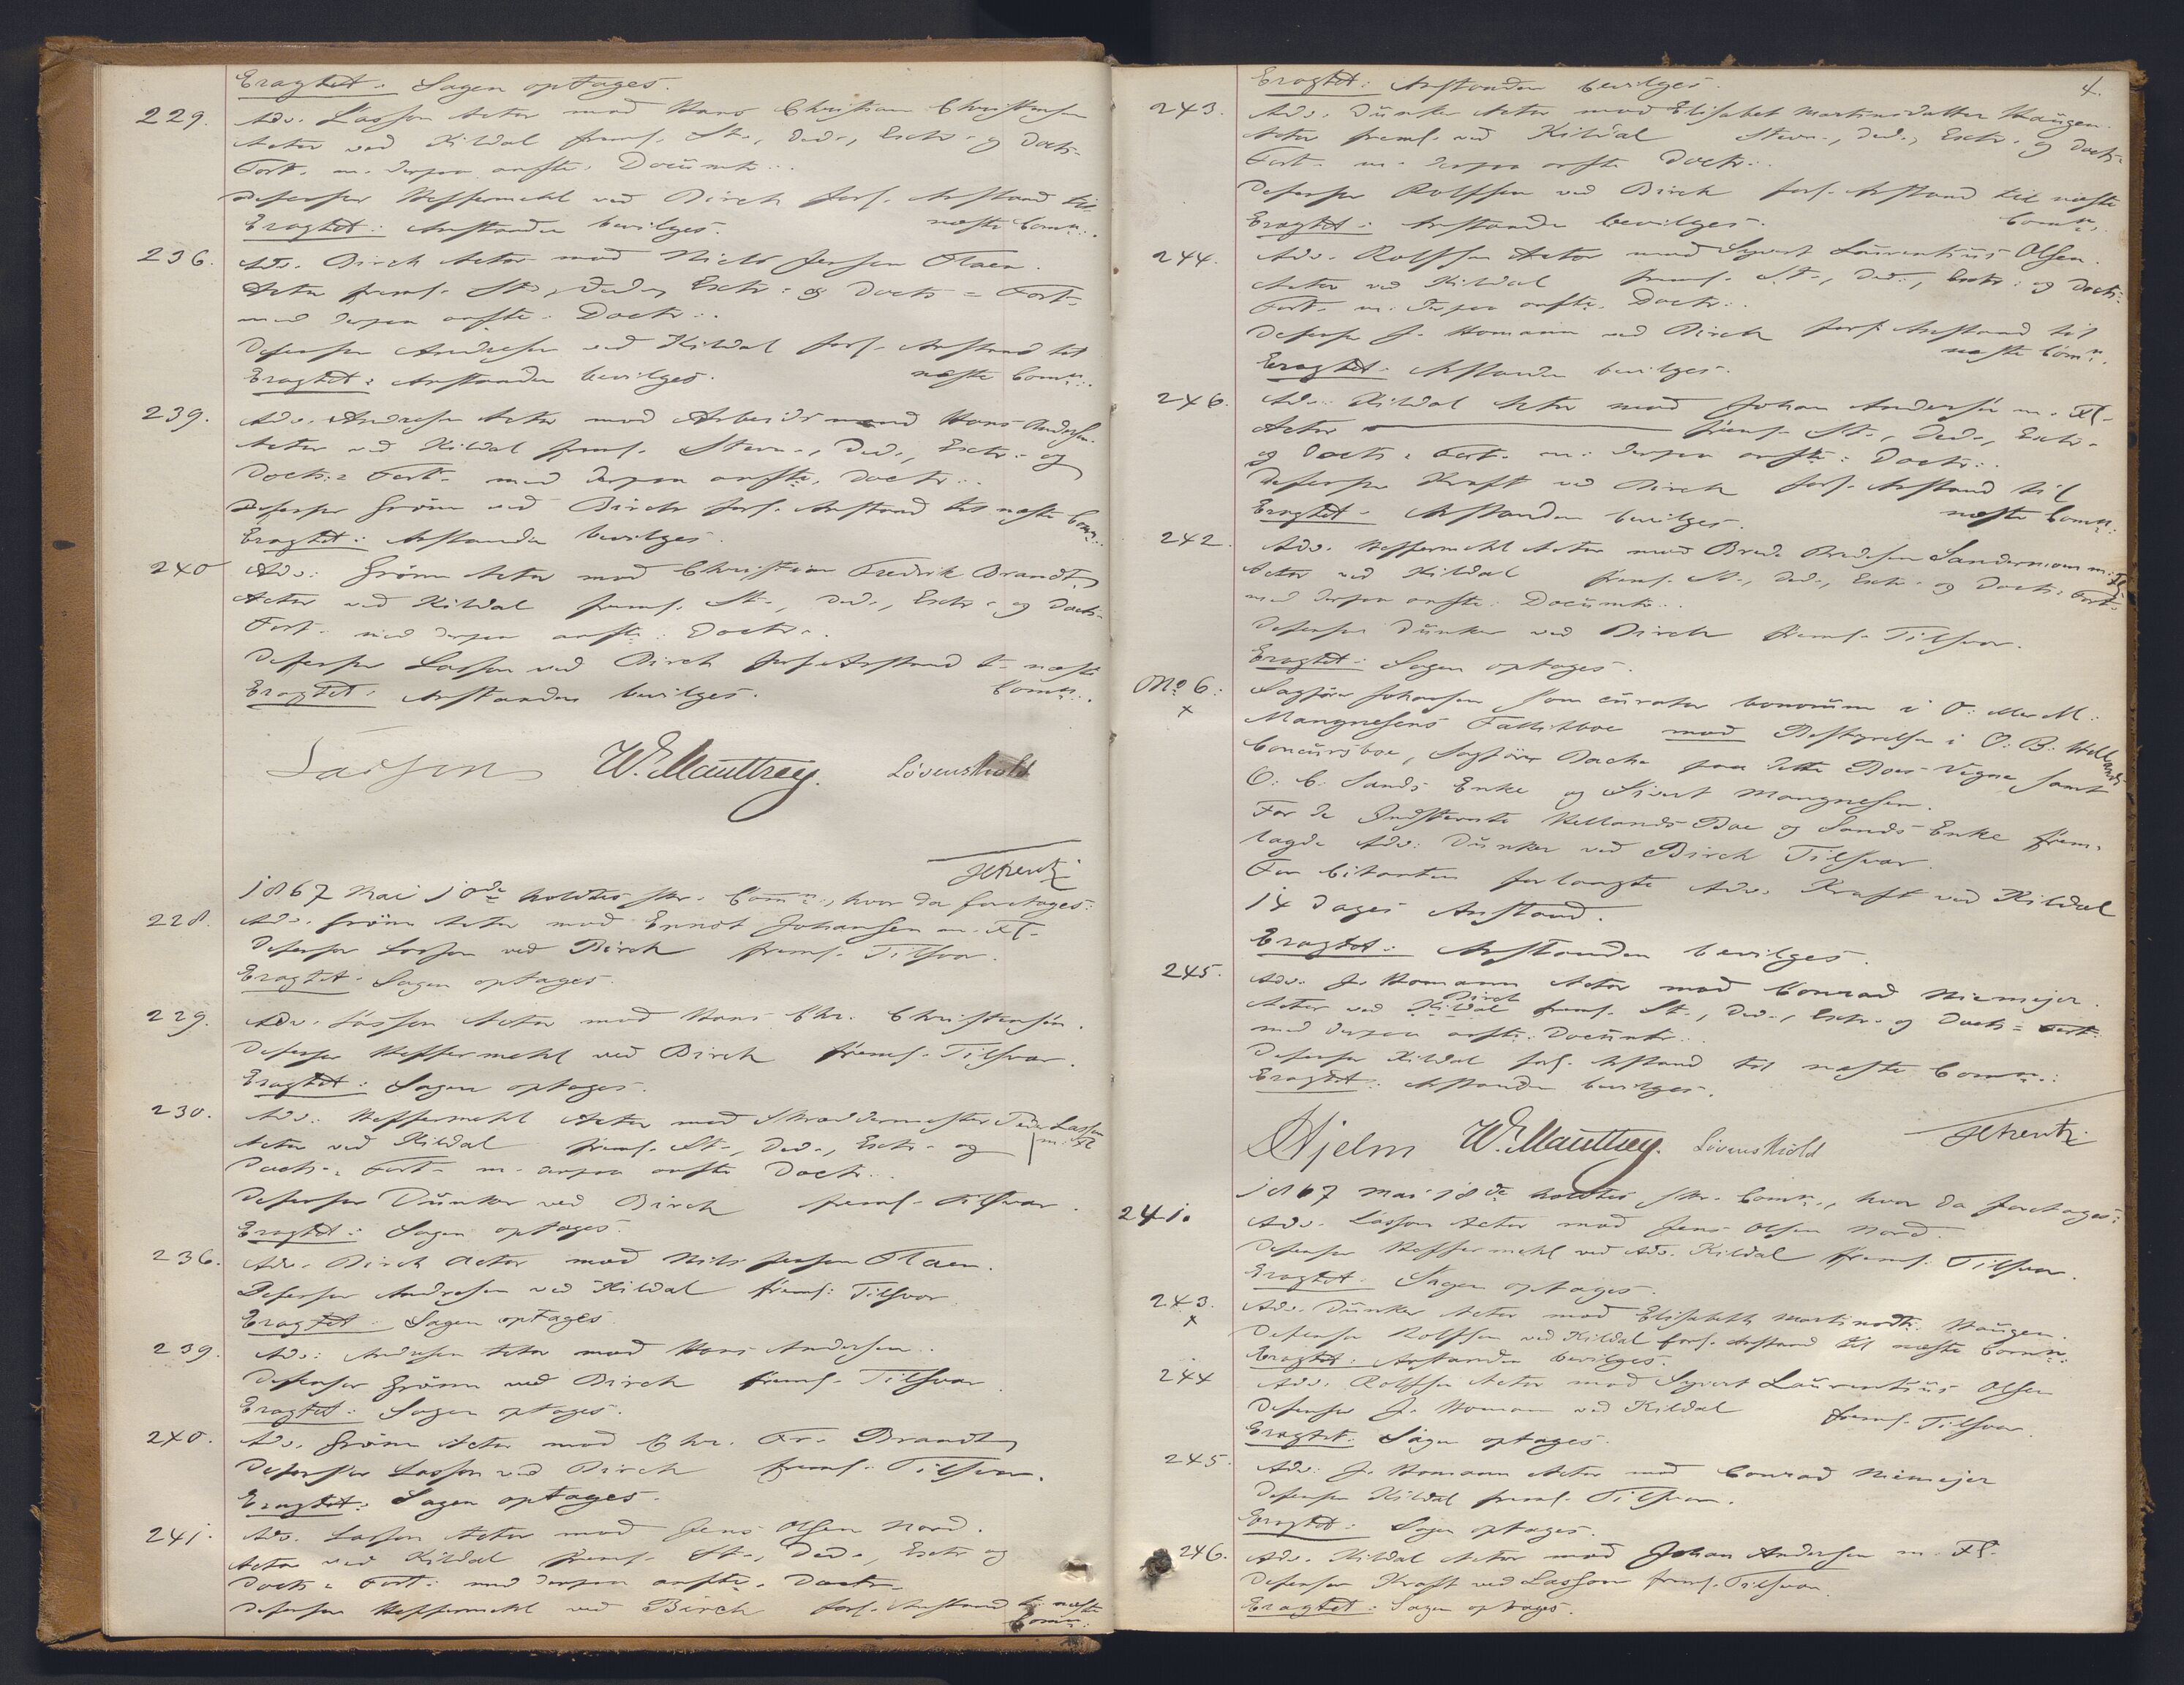 Eragtet: Sagen optages.
229. Adv. Lasson Actor mod Hans Christian Christensen
Actor ved Kildal freml. St., Ded., Extr. og Docts-
Fort. m. derpaa anfte. Documtr.
Defensor Heffermehl ved Birch forl. Anstand til
næste Comn.
Eragtet: Anstanden bevilges.
236. Adv. Birch Actor mod Niels Jensen Flaen.
Actor freml. St., Ded., Extr. og Docts = Fort.
med derpaa anfte. Doctr.
Defensor Andresen ved Kildal forl. Anstand til
næste Comn.
Eragtet: Anstanden bevilges.
239. Adv. Andresen Actor mod Arbeidsmand Hans Andersen.
Actor ved Kildal freml. Stevn., Ded., Extr. og
Docts = Fort. med derpaa anfte. Doctr.
Defensor Grönn ved Birch forl. Anstand til næste Comn.
Eragtet: Anstanden bevilges.
240 Adv: Grönn Actor mod Christian Fredrik Brandt
Actor ved Kildal freml. St., Ded., Extr. og Docts-
Fort. med derpaa anfte: Doctr.
Defensor Lasson ved Birch forl. Anstand t. næste
Comn.
Eragtet: Anstanden bevilges.
Lasson W. Mauttrey. Lövenskiold
1867 Mai 10de holdtes Str. Comn., hvor da foretages:
228. Adv. Grönn Actor mod Ernst Johansen m. Fl.
Defensor Lasson ved Birch freml. Tilsvar.
Eragtet: Sagen optages.
229. Adv. Lasson Actor mod Hans Chr. Christensen.
Defensor Heffermehl ved Birch freml. Tilsvar.
Eragtet: Sagen optages.
230. Adv: Heffermehl Actor mod Skræddermester Peder Larsen
m. Fl
Actor ved Kildal freml. St., Ded., Extr. og
Docts = Fort. m. derpaa anfte Doctr.
Defensor Dünker ved Birch freml. Tilsvar.
Eragtet: Sagen optages.
236. Adv. Birch Actor mod Nils Jensen Flaen.
Defensor Andresen ved Kildal freml: Tilsvar
Eragtet: Sagen optages.
239. Adv: Andresen Actor mod Hans Andersen.
Defensor Grönn ved Birch freml. Tilsvar.
Eragtet: Sagen optages.
240. Adv. Grönn Actor mod Chr. Fr. Brandt
Defensor Lasson ved Birch freml. Tilsvar.
Eragtet: Sagen optages.
241. Adv. Lasson Actor mod Jens Olsen Nord.
Actor ved Kildal freml. St., Ded., Extr. og
Docts = Fort: med derpaa anfte. Doctr.
Defensor Heffermehl ved Birch forl. Anstand t. næste
Comn.
4.
Eragtet: Anstanden bevilges.
243. Adv. Dünker Actor mod Elisabet Martinsdatter Haugen.
Actor freml. ved Kildal Stevn., Ded., Extr. og Docts-
Fort. m. derpaa anfte Doctr.
Defensor Rolffsen ved Birch forl. Anstand til næste
Comn.
Eragtet: Anstanden bevilges.
244. Adv. Rolffsen Actor mod Syvert Laurentius Olsen.
Actor ved Kildal freml. St., Ded., Extr: og Docts:
Fort. m. derpaa anfte. Doctr.
Defensor J. Homann ved Birch forl. Anstand til
næste Comn.
Eragtet: Anstanden bevilges.
246. Adv. Kildal Actor mod Johan Andersen m. Fl.
Actor freml. St., Ded., Extr.
og Docts = Fort. m: derpaa anfte: Doctr.
Defensor Kraft ved Birch forl. Anstand til
næste Comn.
Eragtet: Anstanden bevilges.
242. Adv. Heffermehl Actor mod Brede Bredesen Sandermoen m. Fl
Actor ved Kildal freml. St., Ded., Extr. og Docts = Fort.
med derpaa anfte: Documtr.
Defensor Dünker ved Birch freml. Tilsvar.
Eragtet: Sagen optages.
No 6: Sagförer Johansen som curator bonorum i O.
x Mangnesens Fallitboe mod Bestyrelsen i O. B. Hellands
Concursboe, Sagförer Bache paa dette Boes Vegne samt
O. C. Sands Enke og Sivert Mangnesen.
For de Indstevnte Hellands Boe og Sands Enke frem-
lagde Adv: Dünker ved Birch Tilsvar.
For Citanten forlangte Adv. Kraft ved Kildal
14 Dages Anstand.
Eragtet: Anstanden bevilges.
245. Adv. J. Homann Actor mod Conrad Niemejer.
Birch
Actor ved Kildal freml. St., Ded., Extr. og Docts = Fort:
med derpaa anfte. Documtr.
Defensor Kildal forl. Anstand til næste Comn.
Eragtet: Anstanden bevilges.
Hjelm W. Mauttrey. Lövenskiold
1867 Mai 18de holdtes Str. Comn., hvor da foretages:
241. Adv. Lasson Actor mod Jens Olsen Nord.
Defensor Heffermehl ved Adv. Kildal freml. Tilsvar.
Eragtet: Sagen optages.
243. Adv. Dünker Actor mod Elisabeth Martinsdtr. Haugen.
x Defensor Rolffsen ved Kildal forl. Anstand til næste Comn.
Eragtet: Anstanden bevilges.
244 Adv. Rolffsen Actor mod Syvert Laurentius Olsen
Defensor J. Homann ved Kildal freml. Tilsvar.
Eragtet: Sagen optages.
245. Adv: J. Homann Actor mod Conrad Niemejer
Defensor Kildal freml. Tilsvar.
Eragtet: Sagen optages.
246. Adv. Kildal Actor mod Johan Andersen m. Fl.
Defensor Kraft ved Lasson freml. Tilsvar.
Eragtet: Sagen optages.